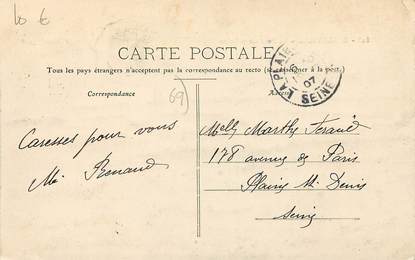 10 €
CARTE POSTALE
Tous les pays étrangers n'acceptent pas la correspondance au recto (se renseigner à la poste.)
Correspondance
69
LA PLAINE
07
SEINE
Caresses pour vous
Renaud
Melle Marthe Feraud
178 avenue de Paris
Plaine St Denis
Seine